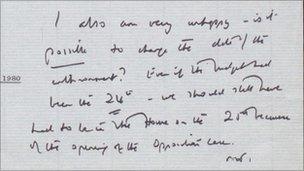 I also am very unhappy - is it
possible to change the date of the
enthronement? Even if the budget had
been the 24th - we should still have
1980
had to be in the House on the 25th because
of the opening of the Opposition case.
MT.